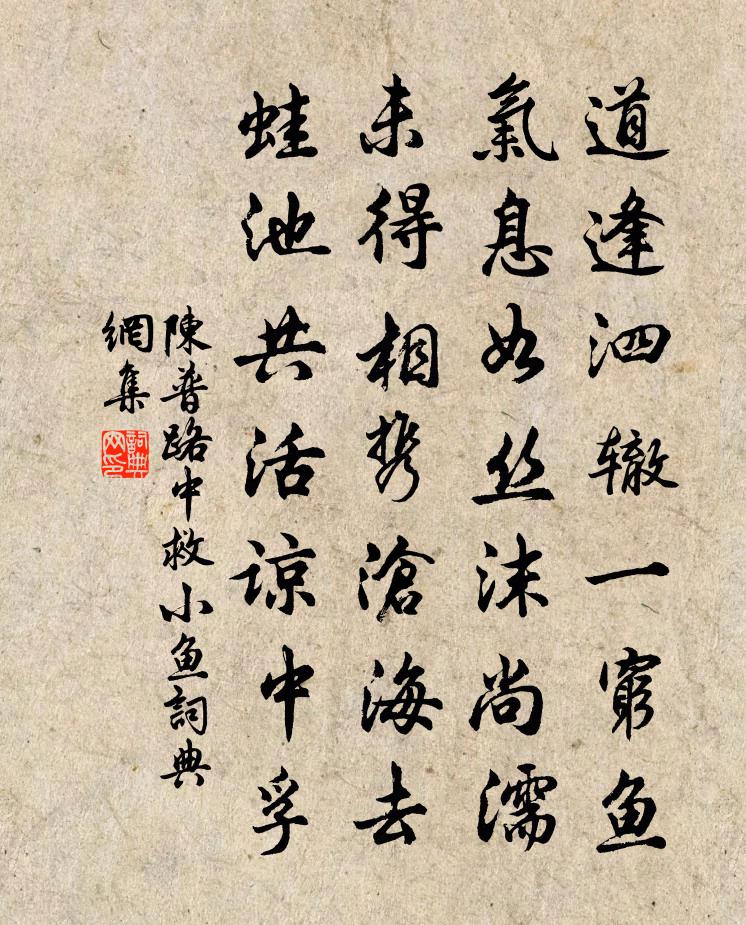 道逢泗辙一穷鱼
氣息如丝沫尚濡
未得相携滄海去
蛙池共活谅中孚
陳普路中救小鱼詞典
網集
詞典
网印